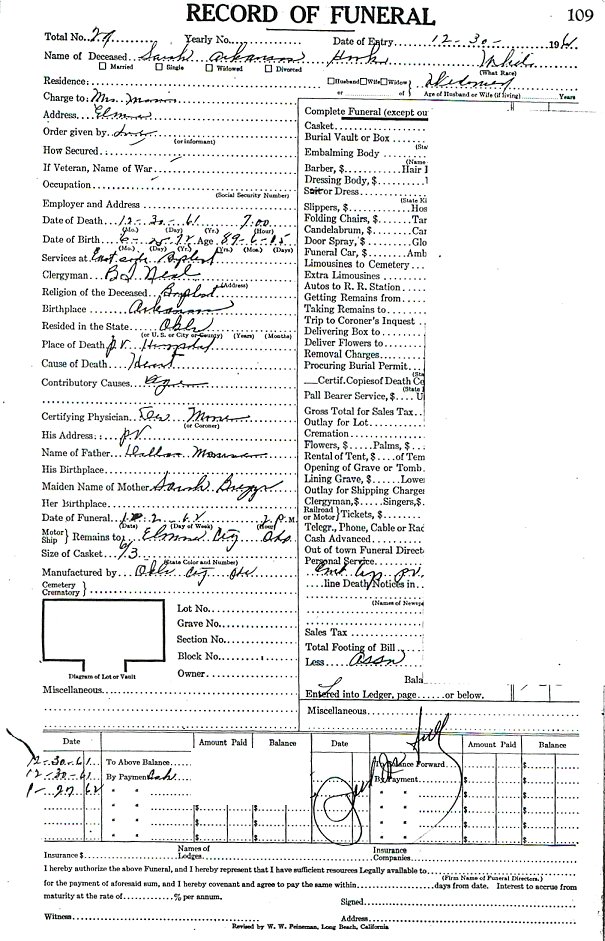 RECORD OF FUNERAL 109
Total No. 29 Yearly No. Date of Entry 12-30- 1961
Name of Deceased Sarah Arkansas Hook White
Married Single Widowed Divorced (What Race)
Residence: Husband Wife Widow or of Widowed Age of Husband or Wife (if living) Years
Charge to: Mrs.
Address Elmer
Order given by
(or informant)
How Secured
If Veteran, Name of War
Occupation
(Social Security Number)
Employer and Address
Date of Death 12-30-61 7.00
(Mo.) (Day) (Yr.) (Hour)
Date of Birth 6- 25-72 Age 89-6-05
(Mo.) (Day) (Yr.) (Yrs.) (Mos.) (Days)
Services at East side Baptist
Clergyman B.J. Neal
(Address)
Religion of the Deceased Baptist
Birthplace Arkansas
Resided in the State Okla
(or U. S. or City or County) (Years) (Months)
Place of Death P.V. Hospital
Cause of Death Heart
Contributory Causes
Certifying Physician
(or Coroner)
His Address P.V.
Name of Father
His Birthplace
Maiden Name of Mother Sarah
Her Birthplace
Date of Funeral 1- 2- 62 2 P. M.
(Date) (Day of Week) (Hour)
Motor Ship Remains to Elmore City Okla.
Size of Casket 6/3
(State Color and Number)
Manufactured by Okla City Okla
Cemetery Crematory
Lot No.
Grave No.
Section No.
Block No.
Owner
Diagram of Lot or Vault
Miscellaneous
Complete Funeral (except ou
Casket
Burial Vault or Box
(Sta
Embalming Body
(Name
Barber, $ Hair
Dressing Body, $
Suit or Dress
(State Ki
Slippers, $ Hos
Folding Chairs, $ Tar
Candelabrum, $ Car
Door Spray, $ Glo
Funeral Car, $ Amb
Limousines to Cemetery
Extra Limousines
Autos to R. R. Station
Getting Remains from
Taking Remains to
Trip to Coroner's Inquest
Delivering Box to
Deliver Flowers to
Removal Charges
Procuring Burial Permit
(Sta
Certif. Copies of Death Ce
(State
Pall Bearer Service, $ U
Gross Total for Sales Tax
Outlay for Lot
Cremation
Flowers, $ Palms, $
Rental of Tent, $ of Tem
Opening of Grave or Tomb
Lining Grave, $ Lowe
Outlay for Shipping Charge
Clergyman, $ Singers, $
Railroad or Motor Tickets, $
Telegr., Phone, Cable or Rad
Cash Advanced
Out of town Funeral Direct
Personal Service
line Death Notices in
(Names of Newsp
Sales Tax
Total Footing of Bill
Less Assn
Bala
Entered into Ledger, page or below.
Miscellaneous
Date Amount Paid Balance Date Amount Paid Balance
12-30-61 To Above Balance To Balance Forward
12-30-61 By Payment By Payment
1-27-62 " " " "
" " $ $ " " $ $
Insurance $ Names of Lodges Insurance Companies
I hereby authorize the above Funeral, and I hereby represent that I have sufficient resources Legally available to
(Firm Name of Funeral Directors.)
for the payment of aforesaid sum, and I hereby covenant and agree to pay the same within days from date. Interest to accrue from
maturity at the rate of % per annum. Signed
Witness Address
Revised by W. W. Peineman, Long Beach, California